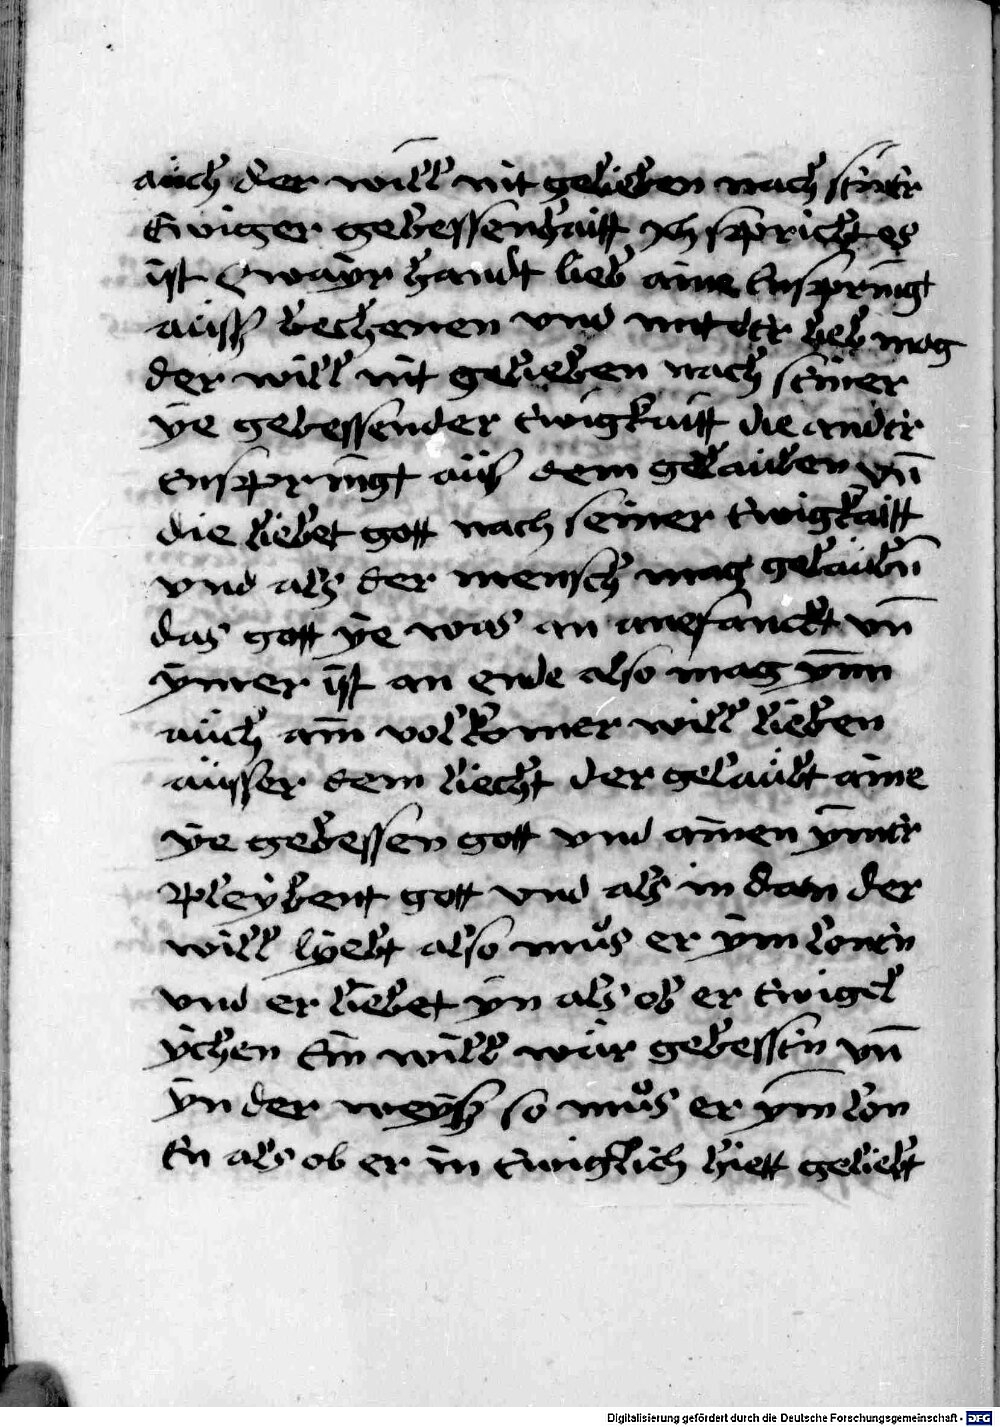 auch der will nit gelieben nach seiner
Ewiger gebessenhaitt Ich sprich es
ist Zwayr handt lieb aine Enspringt
aüss bechenen vnd mit der lieb mag
der will nit gelieben nach seiner
ye gebessender Ewigkaitt die ander
Enspringt aüs dem gelauben vn̄
die liebet gott nach seiner Ewigkaitt
vnd als der mensch mag gelaubn̄
das gott ye was an anefanckt vn̄
ymer ist an ende also mag ym̄
aüch ain volkomer will lieben
aüsser dem liecht der gelaübt aine
ye gebessen gott vnd ainen ymer
Pleybent gott vnd als in dan der
will lyebt also mus er ym lonen
vnd er liebet yn als ob er Ewigel
ychen Ein will wär gebessen vn̄
yn der weyss so mus er ym̄ lon
En als ob er in Ewigklich hiett geliebt
Digitalisierung gefördert durch die Deutsche Forschungsgemeinschaft - DFG